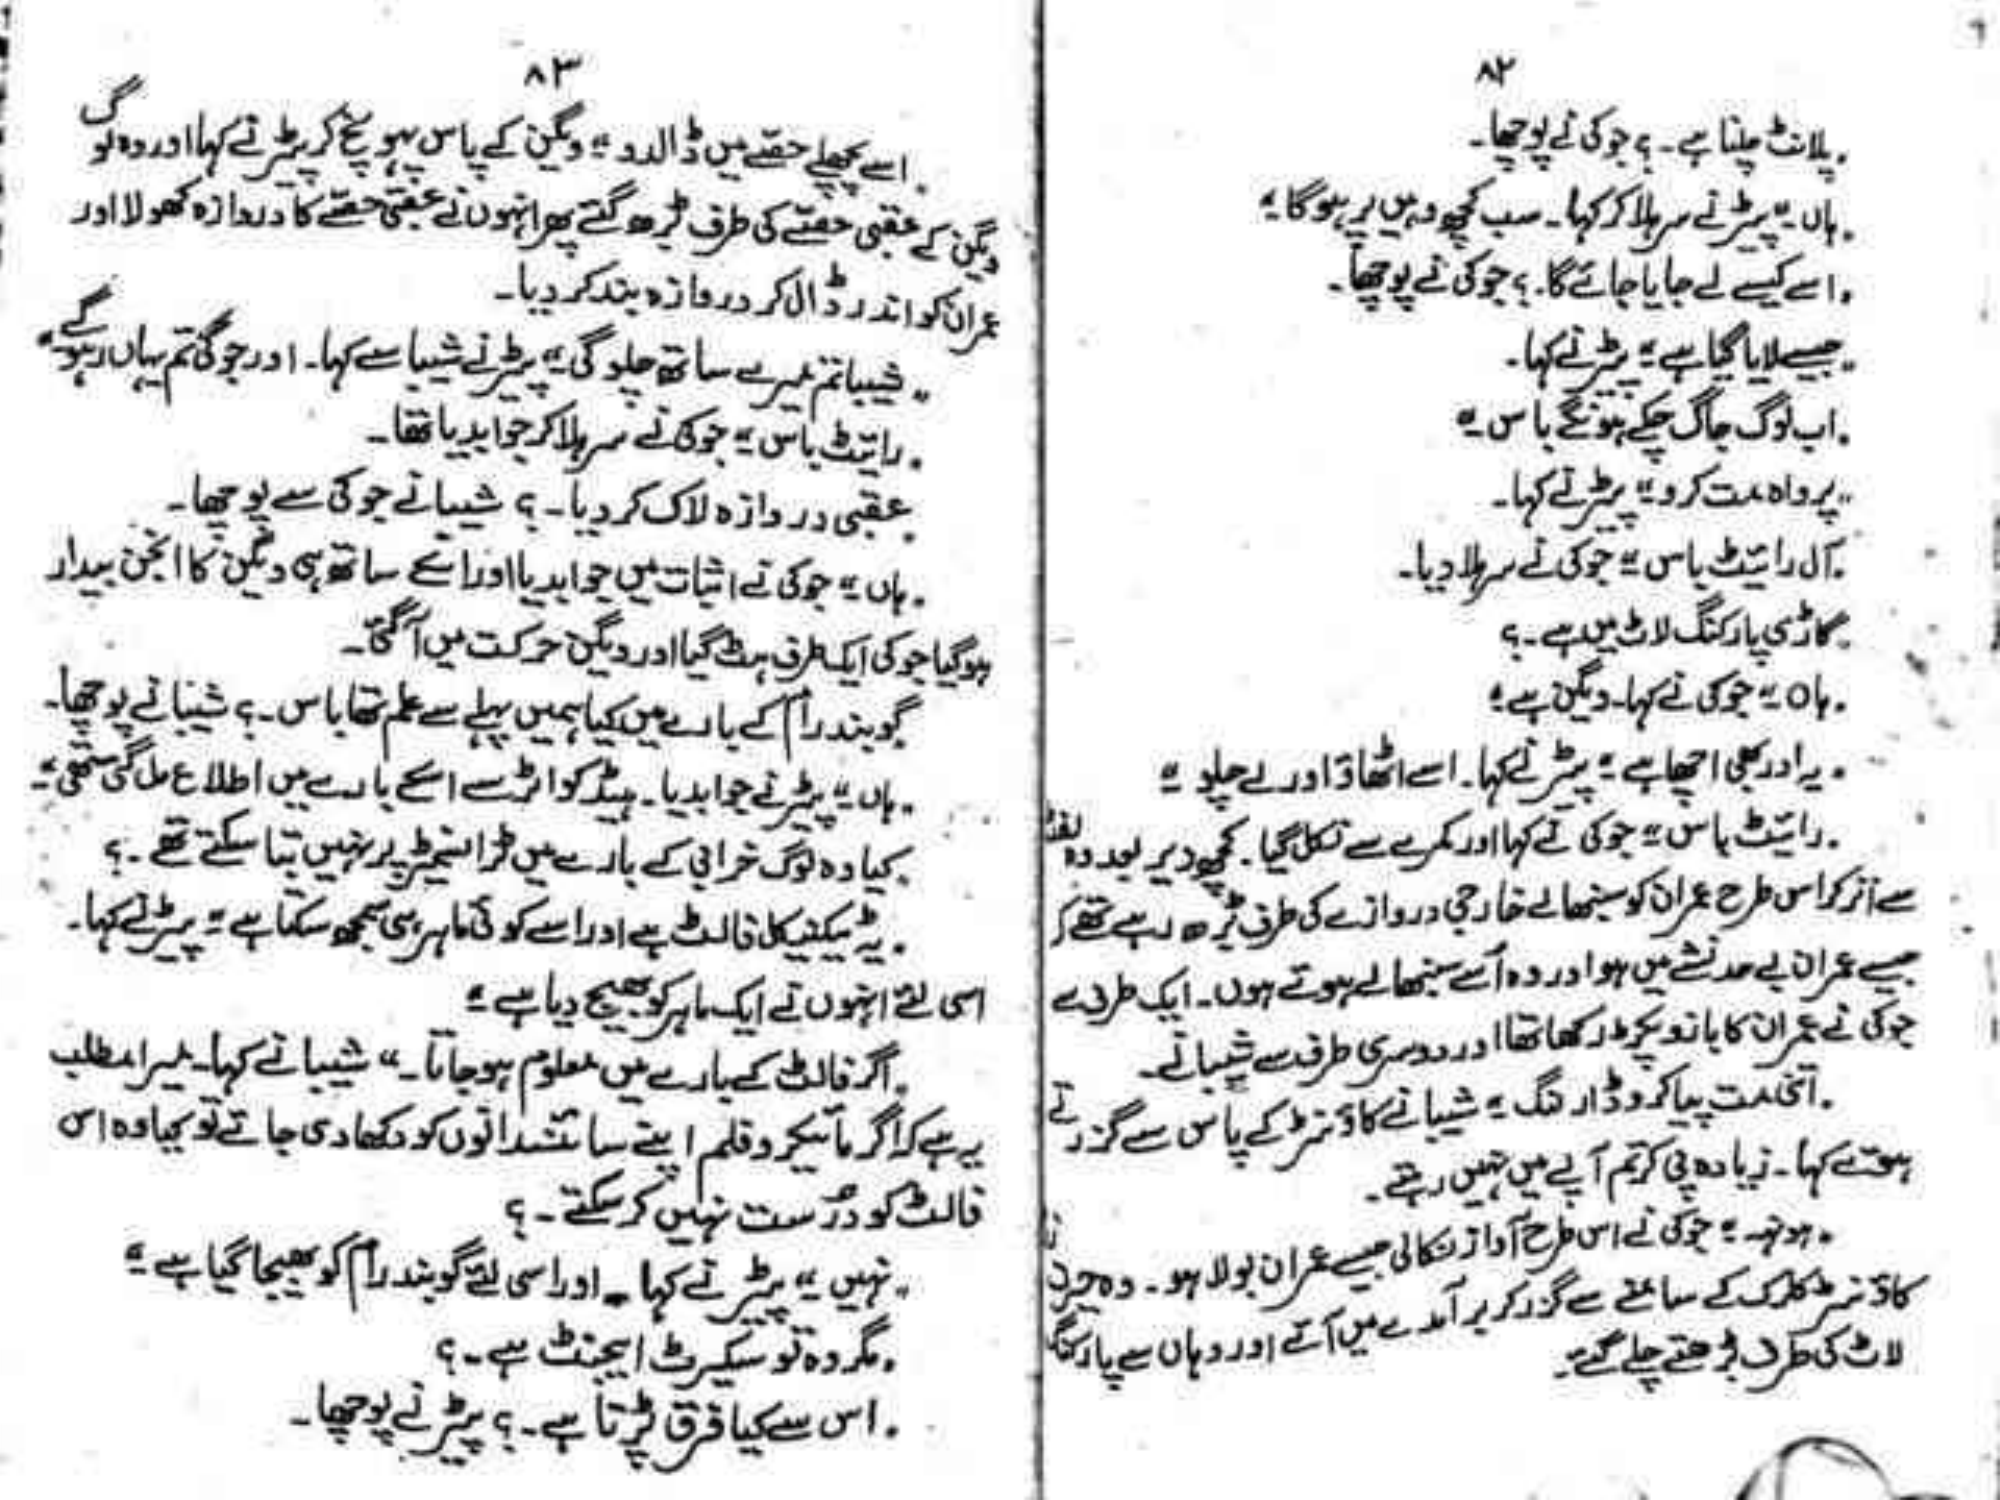 ۸۲
"پلانٹ چلنا ہے۔؟ جوکی نے پوچھا۔
"ہاں" پیٹر نے سر ہلا کر کہا۔ سب کچھ وہیں پر ہوگا"
"اسے کیسے لے جایا جائے گا۔؟ جوکی نے پوچھا۔
"جیسے لایا گیا ہے" پیٹر نے کہا۔
"اب لوگ جاگ چکے ہونگے باس"
"پرواہ مت کرو" پیٹر نے کہا۔
"آل رائیٹ باس" جوکی نے سر ہلا دیا۔
"گاڑی پارکنگ لاٹ میں ہے۔؟
"ہاں" جوکی نے کہا۔ ویگن ہے"
"یہ اور بھی اچھا ہے" پیٹر نے کہا۔ اسے اٹھاؤ اور لے چلو"
"رائیٹ باس" جوکی نے کہا اور کمرے سے نکل گیا۔ کچھ دیر بعد وہ لفٹ
سے اتر کر اس طرح عمران کو سنبھالے خارجی دروازے کی طرف بڑھ رہے تھے کہ
جیسے عمران بے حد نشے میں ہو اور وہ اُسے سنبھالے ہوئے ہوں۔ ایک طرف سے
جوکی نے عمران کا بازو پکڑ رکھا تھا اور دوسری طرف سے شیبا نے۔
"اتنی مت پیا کرو ڈارلنگ" شیبا نے کاؤنٹر کے پاس سے گزرتے
ہوئے کہا۔ زیادہ پی کر تم آپے میں نہیں رہتے۔
"ہونہہ" جوکی نے اس طرح آواز نکالی جیسے عمران بولا ہو۔ وہ تینوں
کاؤنٹر کلرک کے سامنے سے گزر کر برآمدے میں آئے اور وہاں سے پارکنگ
لاٹ کی طرف بڑھتے چلے گئے۔
۸۳
"اسے پچھلے حصّے میں ڈالدو" ویگن کے پاس پہونچ کر پیٹر نے کہا اور وہ لوگ
ویگن کے عقبی حصّے کی طرف بڑھ گئے پھر انہوں نے عقبی حصّے کا دروازہ کھولا اور
عمران کو اندر ڈال کر دروازہ بند کر دیا۔
"شیبا تم میرے ساتھ چلو گی" پیٹر نے شیبا سے کہا۔ اور جوکی تم یہاں رہو گے"
"رائیٹ باس" جوکی نے سر ہلا کر جوابدیا تھا۔
"عقبی دروازہ لاک کر دیا۔؟ شیبا نے جوکی سے پوچھا۔
"ہاں" جوکی نے اثبات میں جوابدیا اور اسکے ساتھ ہی ویگن کا انجن بیدار
ہو گیا جوکی ایک طرف ہٹ گیا اور ویگن حرکت میں آ گئی۔
"گوبند رام کے بارے میں کیا ہمیں پہلے سے علم تھا باس۔؟ شیبا نے پوچھا۔
"ہاں" پیٹر نے جوابدیا۔ ہیڈ کوارٹر سے اسکے بارے میں اطلاع مل گئی تھی"
"کیا وہ لوگ خرابی کے بارے میں ٹرانسمیٹر پر نہیں بتا سکتے تھے۔؟
"یہ ٹیکنیکل فالٹ ہے اور اسے کوئی ماہر ہی سمجھ سکتا ہے" پیٹر نے کہا۔
اسی لئے انہوں نے ایک ماہر کو بھیج دیا ہے"
"اگر فالٹ کے بارے میں معلوم ہو جاتا۔" شیبا نے کہا۔ میرا مطلب
یہ ہے کہ اگر مائیکرو فلم اپنے سائنسدانوں کو دکھا دی جائے تو کیا وہ اس
فالٹ کو درُست نہیں کر سکتے۔؟
"نہیں" پیٹر نے کہا۔ اور اسی لئے گوبند رام کو بھیجا گیا ہے"
"مگر وہ تو سیکرٹ ایجنٹ ہے۔؟
"اس سے کیا فرق پڑتا ہے۔؟ پیٹر نے پوچھا۔